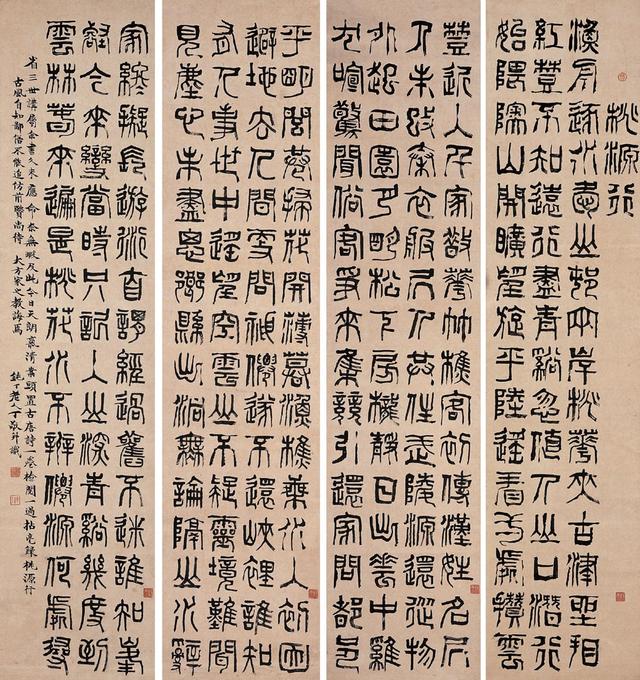 桃源行
漁舟逐水愛山春兩岸桃華夾古津坐相
紅豎不知遠行盡青谿忽值人山口潛行
始隈隩山開曠望旋平陸遙看一處攢雲
豎近入千家散華竹樵客初傳漢姓名居
人未改秦衣服居人共住武陵源還從物
外起田園月明松下房櫳靜日出雲中雞
犬喧驚聞俗客爭來集競引還家問都邑
平明閭巷掃花開薄暮漁樵乘水入初因
避地去人間更問神僊遂不還峽裡誰知
有人事世中遙望空雲山不疑靈境難聞
見塵心未盡思鄉縣出洞無論隔山水辭
家終擬長遊衍自謂經過舊不迷誰知峯
壑今來變當時只記入山深青谿幾度到
雲林春來遍是桃花水不辨僊源何處尋
省三世講屬余書久未應命奈無暇及此今日天朗氣清案頭置古唐詩一卷檢閱一過拈毫錄桃源行
古風自知鄙俗不能追仿前賢尚待大方家之教誨焉 鈍丁老人丁敬并識